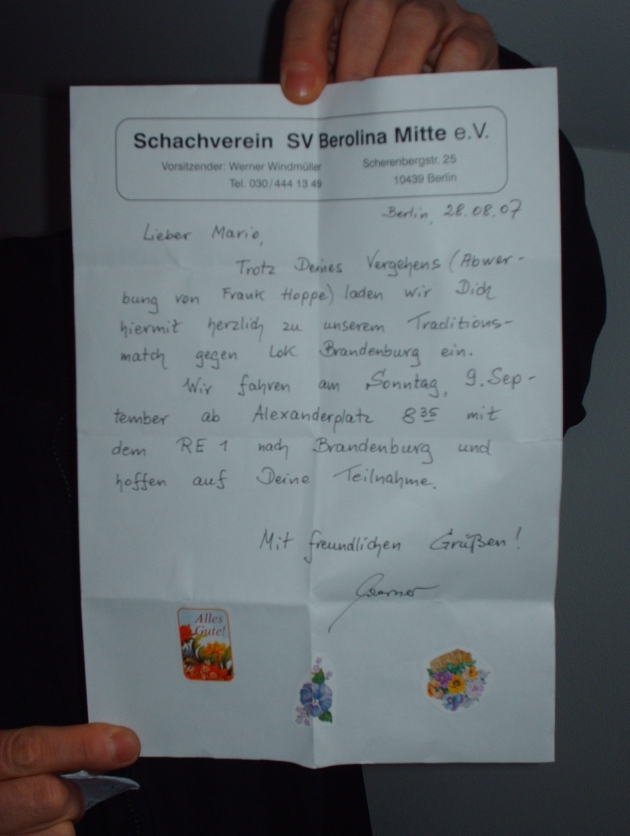 Schachverein SV Berolina Mitte e.V.
Vorsitzender: Werner Windmüller Scherenbergstr. 25
Tel. 030/444 13 49 10439 Berlin
Berlin, 28.08.07
Lieber Mario,
Trotz Deines Vergehens (Abwer-
bung von Frank Hoppe) laden wir Dich
hiermit herzlich zu unserem Traditions-
match gegen Lok Brandenburg ein.
Wir fahren am Sonntag, 9. Sep-
tember ab Alexanderplatz 8 35 mit
dem RE 1 nach Brandenburg und
hoffen auf Deine Teilnahme.
Mit freundlichen Grüßen!
Werner
Alles
Gute!